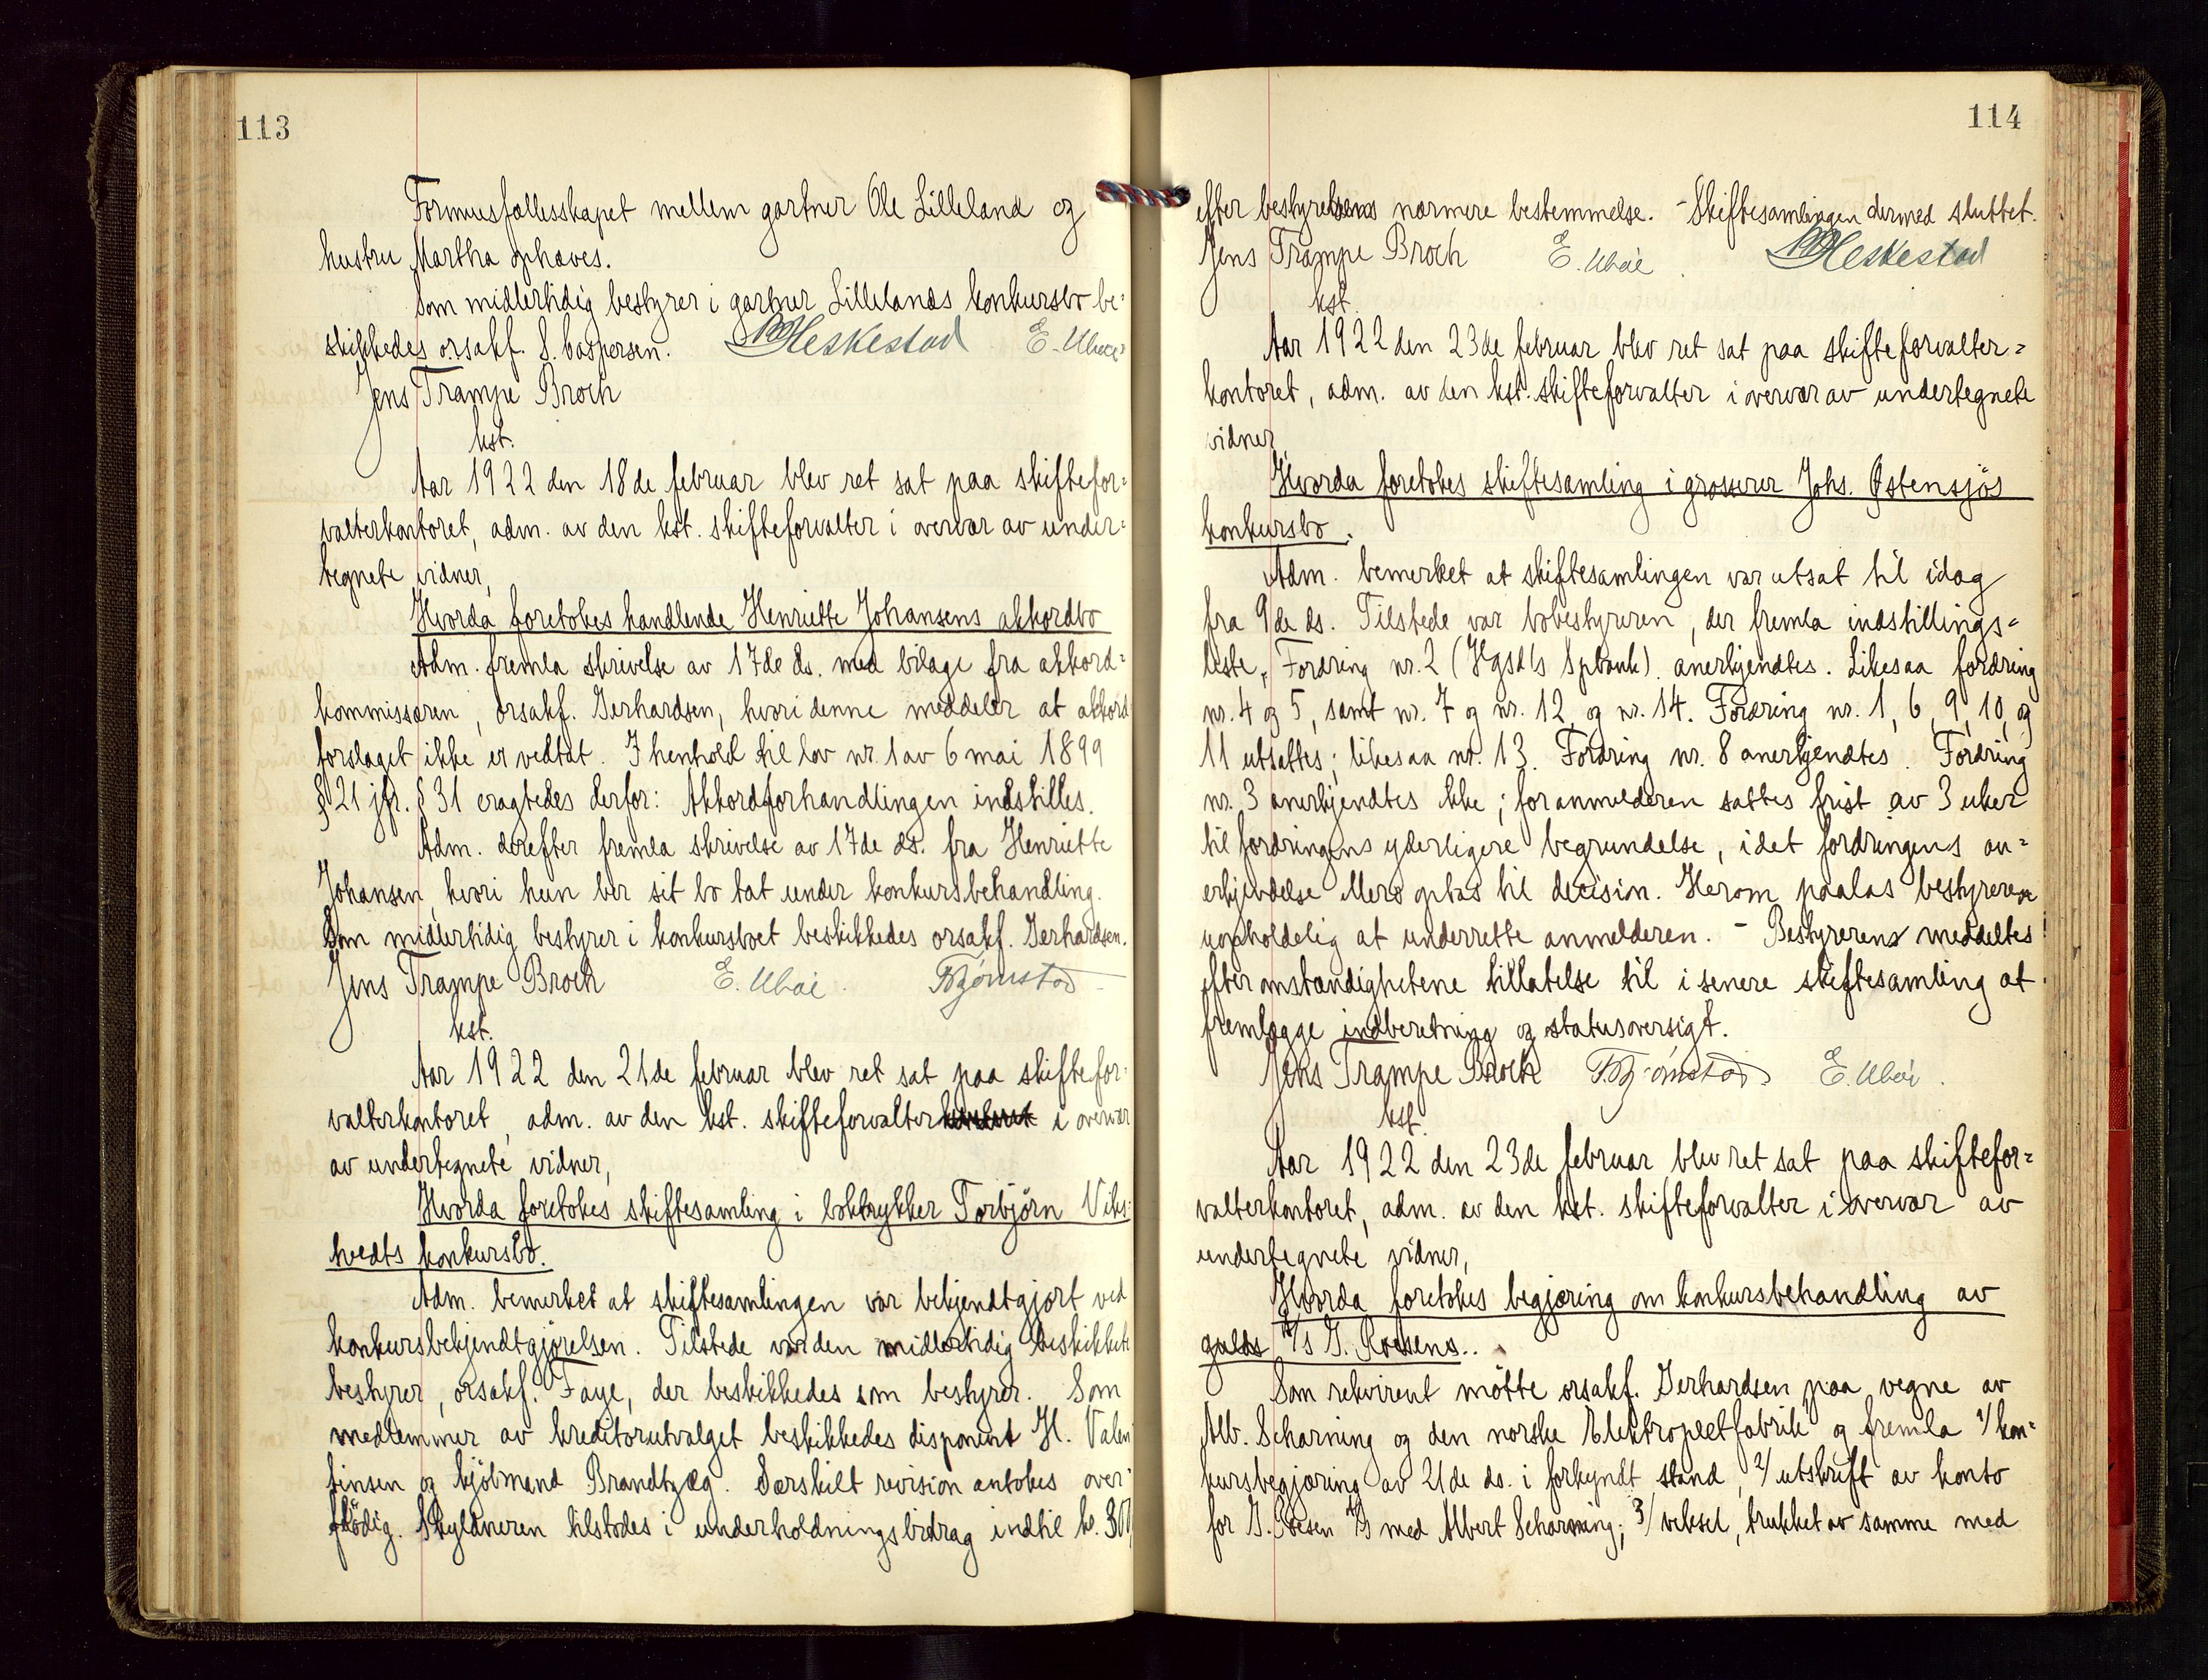 113
Formuesfællesskapet mellem gartner Ole Lilleland og
hustru Martha ophæves.
Som midlertidig bestyrer i gartner Lillelands konkursbo be=
skikkedes orsakf. S. Caspersen. Heskestad E. Uboe
Jens Trampe Broch
kst.
Aar 1922 den 18de februar blev ret sat paa skiftefor=
valterkontoret, adm. av den kst. skifteforvalter i overvær av under=
tegnete vidner,
Hvorda foretokes handlende Henriette Johansens akkordbo
Adm. fremla skrivelse av 17de ds. med bilage fra akkord=
kommissæren, orsakf. Gerhardsen, hvori denne meddeler at akkord
forslaget ikke er vedtat. I henhold til lov nr. 1 av 6 mai 1899
§ 21 jfr. § 31 eragtedes derfor: Akkordforhandlingen indstilles.
Adm. derefter fremla skrivelse av 17de ds. fra Henriette
Johansen, hvori hun ber sit bo tat under konkursbehandling.
Som midlertidig bestyrer i konkursboet beskikkedes orsakf. Gerhardsen.
Jens Trampe Broch E. Uboe. T Bjørnstad
kst.
Aar 1922 den 21de februar blev ret sat paa skiftefor=
valterkontoret, adm. av den kst. skifteforvalter i overvær
av undertegnete vidner,
Hvorda foretokes skiftesamling i boktrykker Torbjörn Viks=
hvedts konkursbo.
Adm. bemerket at skiftesamlingen var bekjendtgjort ved
konkursbekjendtgjørelsen. Tilstede var den midlertidig beskikkete
bestyrer, orsakf. Faye, der beskikkedes som bestyrer. Som
medlemmer av kreditorutvalget beskikkedes disponent H. Valen
tinsen og kjöbmand Brandtzæg. Særskilt revision antokes over=
flödig. Skyldneren tilstodes i underholdningsbidrag indtil kr.
114
efter bestyrelsens nærmere bestemmelse. - Skiftesamlingen dermed sluttet.
Jens Trampe Broch E. Uboe Heskestad
kst.
Aar 1922 den 23de februar blev ret sat paa skifteforvalter=
kontoret, adm. av den kst. skifteforvalter i overvær av undertegnete
vidner,
Hvorda foretokes skiftesamling i grosserer Johs. Østensjös
konkursbo.
Adm. bemerket at skiftesamlingen var utsat til idag
fra 9de ds. Tilstede var bobestyreren, der fremla indstillings=
liste. Fordring nr. 2 (Hgsds Spbank) anerkjendtes. Likesaa fordring
nr. 4 og 5, samt nr. 7 og nr. 12 og nr. 14. Fordring nr. 1, 6, 9, 10 og
11 utsattes; likesaa nr. 13. Fordring nr. 8 anerkjendtes. Fordring
nr. 3 anerkjendtes ikke; for anmelderen sattes frist av 3 uker
til fordringens yderligere begrundelse, idet fordringens an=
erkjendelse ellers optas til decision. Herom paalas bestyreren
uopholdelig at underrette anmelderen. - Bestyreren meddeltes
efter omstændighetene tillatelse til i senere skiftesamling at
fremlægge indberetning og statusoversigt.
Jens Trampe Broch T Bjørnstad E. Uboe.
kst.
Aar 1922 den 23de februar blev ret sat paa skiftefor=
valterkontoret, adm. av den kst. skifteforvalter i overvær av
undertegnete vidner,
Hvorda foretokes begjæring om konkursbehandling av
A/s J. Roesens..
Som rekvirent mötte orsakf. Gerhardsen paa vegne av
Alb. Scharning og den norske Elektropletfabrik og fremla 1/ kon=
kursbegjæring av 21de ds. i forkyndt stand, 2/ utskrift av konto
for J. Roesen A/s med Albert Scharning; 3/ veksel, trukket av samme med